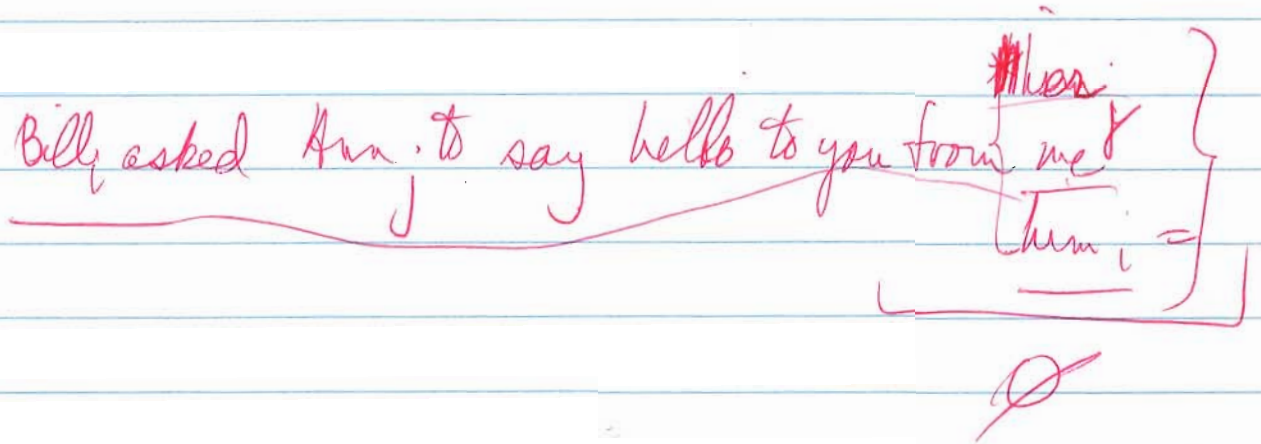 Bill asked Ann to say hello to you from me
him i =
∅